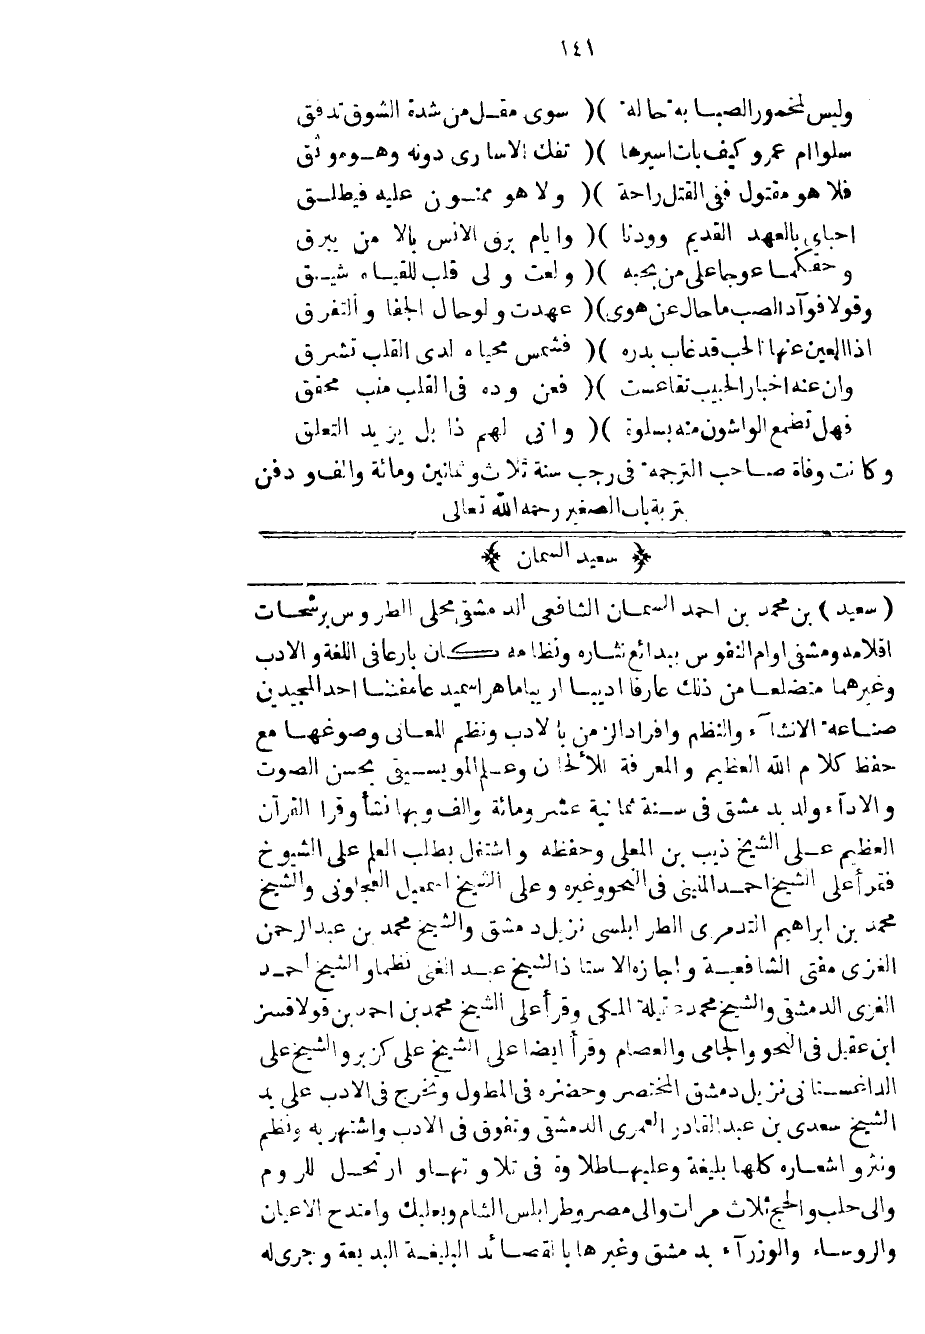 ١٤١
وليس لمخمور الصبابة حالة )( سوى مقل من شدة الشوق تدفق
سلوا ام عمرو كيف بات اسيرها )( تفك الاسارى دونه وهو موثق
فلا هو مقتول ففي القتل راحة )( ولا هو ممنون عليه فيطلق
احباى بالعهد القديم وودنا )( وايام برق الانس بالامن يبرق
وحقكما عوجا على من يحبه )( ولعت ولى قلب للقياه شيق
وقولا فوآد الصب ما حال عن هوى )( عهدت ولو حال الجفا والتفرق
اذا العين عنها الحب قد غاب بدره )( فشمس محياه لدى القلب تشرق
وان عنه اخبار الحبيب تقاعست )( فعن وده فى القلب منب محقق
فهل تطمع الواشون منه بسلوة )( وانى لهم ذا بل يزيد التعلق
وكانت وفاة صاحب الترجمة فى رجب سنة ثلاث وثمانين ومائة والف ودفن
بتربة باب الصغير رحمه الله تعالى
﴿ سعيد السمان ﴾
( سعيد ) بن محمد بن احمد السمان الشافعى الدمشقى محلى الطروس برشحات
اقلامه ومشفى اوام النفوس ببدائع نثاره ونظامه كان بارعا فى اللغة والادب
وغيرهما متضلعا من ذلك عارفا اديبا اريبا ماهرا سميدعا مفننا احد المجيدين
صناعة الانشآء والنظم وافراد الزمن بالادب ونظم المعانى وصوغها مع
حفظ كلام الله العظيم والمعرفة للألحان وعلم الموسيقى بحسن الصوت
والادآء ولد بدمشق فى سنة ثمانية عشر ومائة والف وبها نشأ وقرا القرآن
العظيم على الشيخ ذيب بن المعلى وحفظه واشتغل بطلب العلم على الشيوخ
فقرأ على الشيخ احمد المنينى فى النحو وغيره وعلى الشيخ اسمعيل العجلونى والشيخ
محمد بن ابراهيم التدمرى الطرابلسى نزيل دمشق والشيخ محمد بن عبدالرحمن
الغزى مفتى الشافعية واجازه الاستاذ الشيخ عبد الغنى نظما والشيخ احمد
الغزى الدمشقى والشيخ محمد عقيلة المكى وقرأ على الشيخ محمد بن احمد بن قولاقسز
ابن عقيل فى النحو والجامى والعصام وقرأ ايضا على الشيخ على كزبر والشيخ على
الداغستانى نزيل دمشق المختصر وحضره فى المطول وتخرج فى الادب على يد
الشيخ سعدى بن عبد القادر العمرى الدمشقى وتفوق فى الادب واشتهر به ونظم
ونثر واشعاره كلها بليغة وعليها طلاوة فى تلاوتها وارتحل للروم
والى حلب والحج ثلاث مرات والى مصر وطرابلس الشام وبعلبك وامتدح الاعيان
والروساء والوزرآء بدمشق وغيرها بالقصائد البليغة البديعة وجرى له